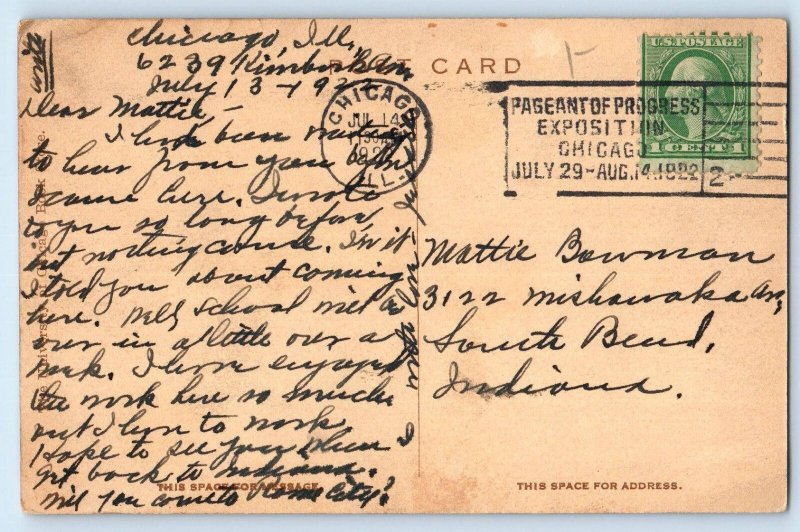 Chicago, Ill,
6239 Kimbark Av.
July 13-192
POST CARD
Dear Mattie, -
I have been waiting
to hear from you before
I came here. I wrote
to you so long before,
but nothing came. In it
I told you about coming
here. Well school will be
over in a little over a
week. I have enjoyed
the work here so much
but I have to work.
Hope to see you when I
get back to Indiana.
Will you come to Rome City?
write
CHICAGO
JUL 14
ILL.
PAGEANT OF PROGRESS
EXPOSITION
CHICAGO
JULY 29-AUG.14.1922
2
U.S. POSTAGE
1 CENT 1
Mattie Bowman
3122 Mishawaka Av,
South Bend,
Indiana.
THIS SPACE FOR MESSAGE.
THIS SPACE FOR ADDRESS.